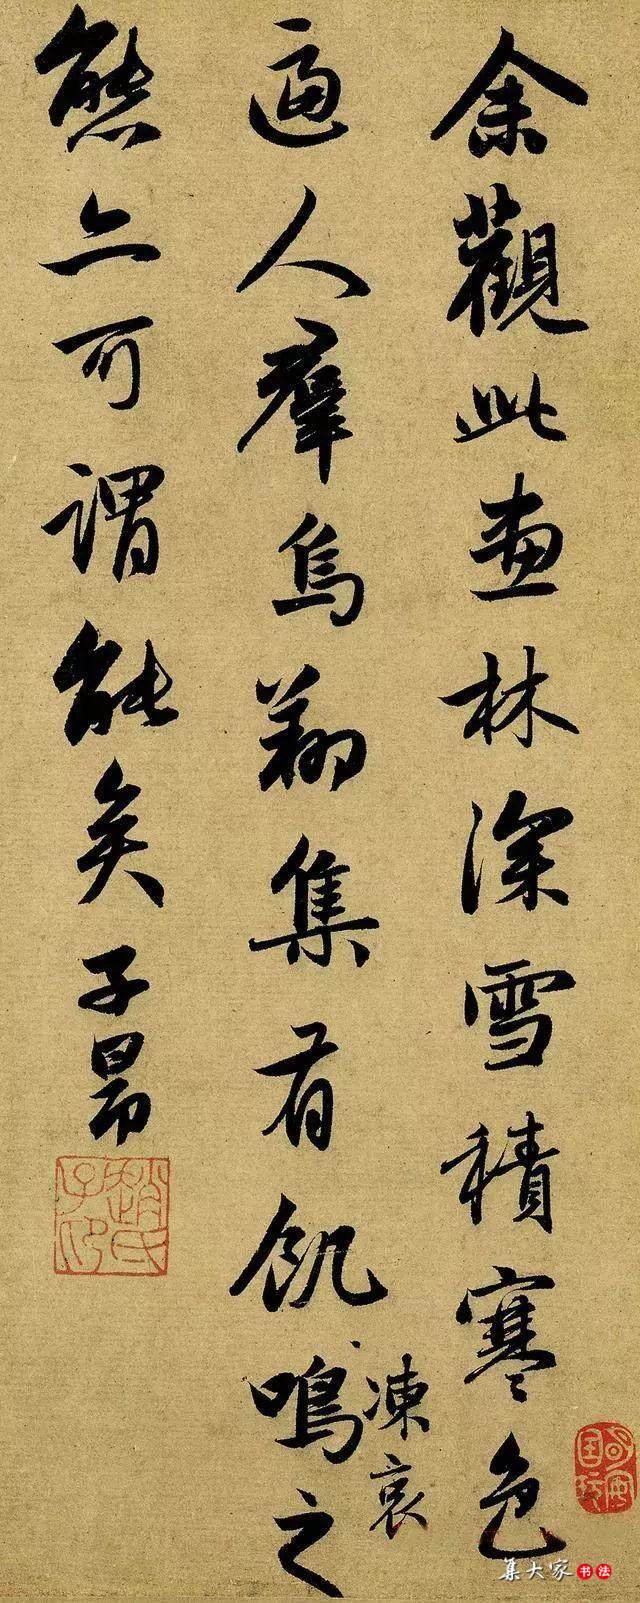 余觀此畫林深雪積寒色
逼人羣烏翔集有飢鳴之
凍哀
態亦可謂能矣子昂
趙氏子印
集大家书法